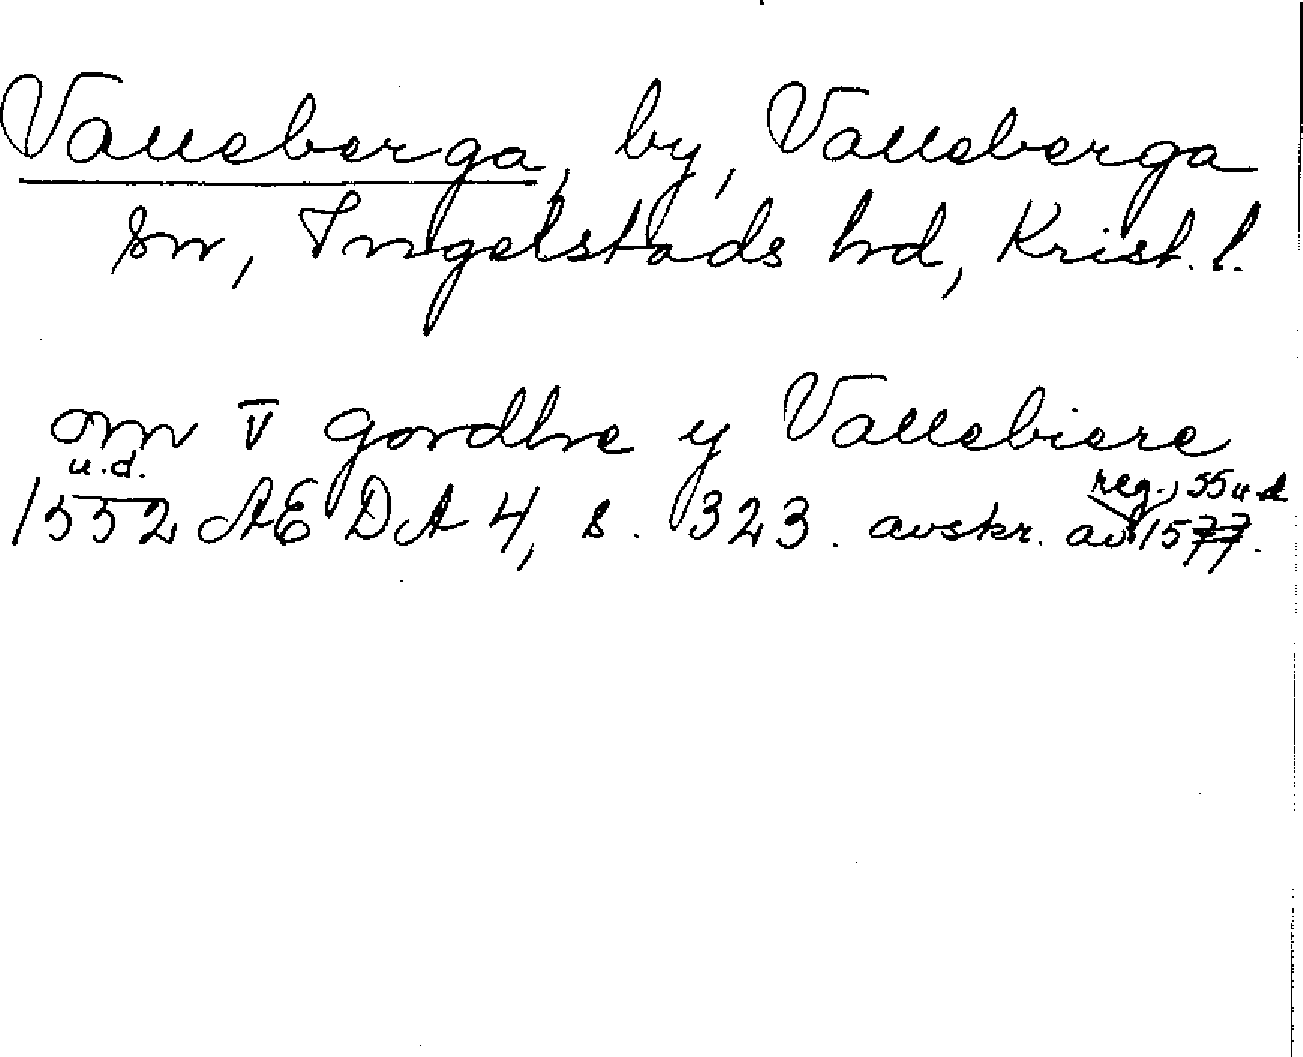 Valleberga, by, Valleberga
sn, Ingelstads hd, Krist. l.
om V gordhe y Vallebiere
u.d. reg., 55 u.d
1552 AEDA 4, s. 323. avskr. av 1577.